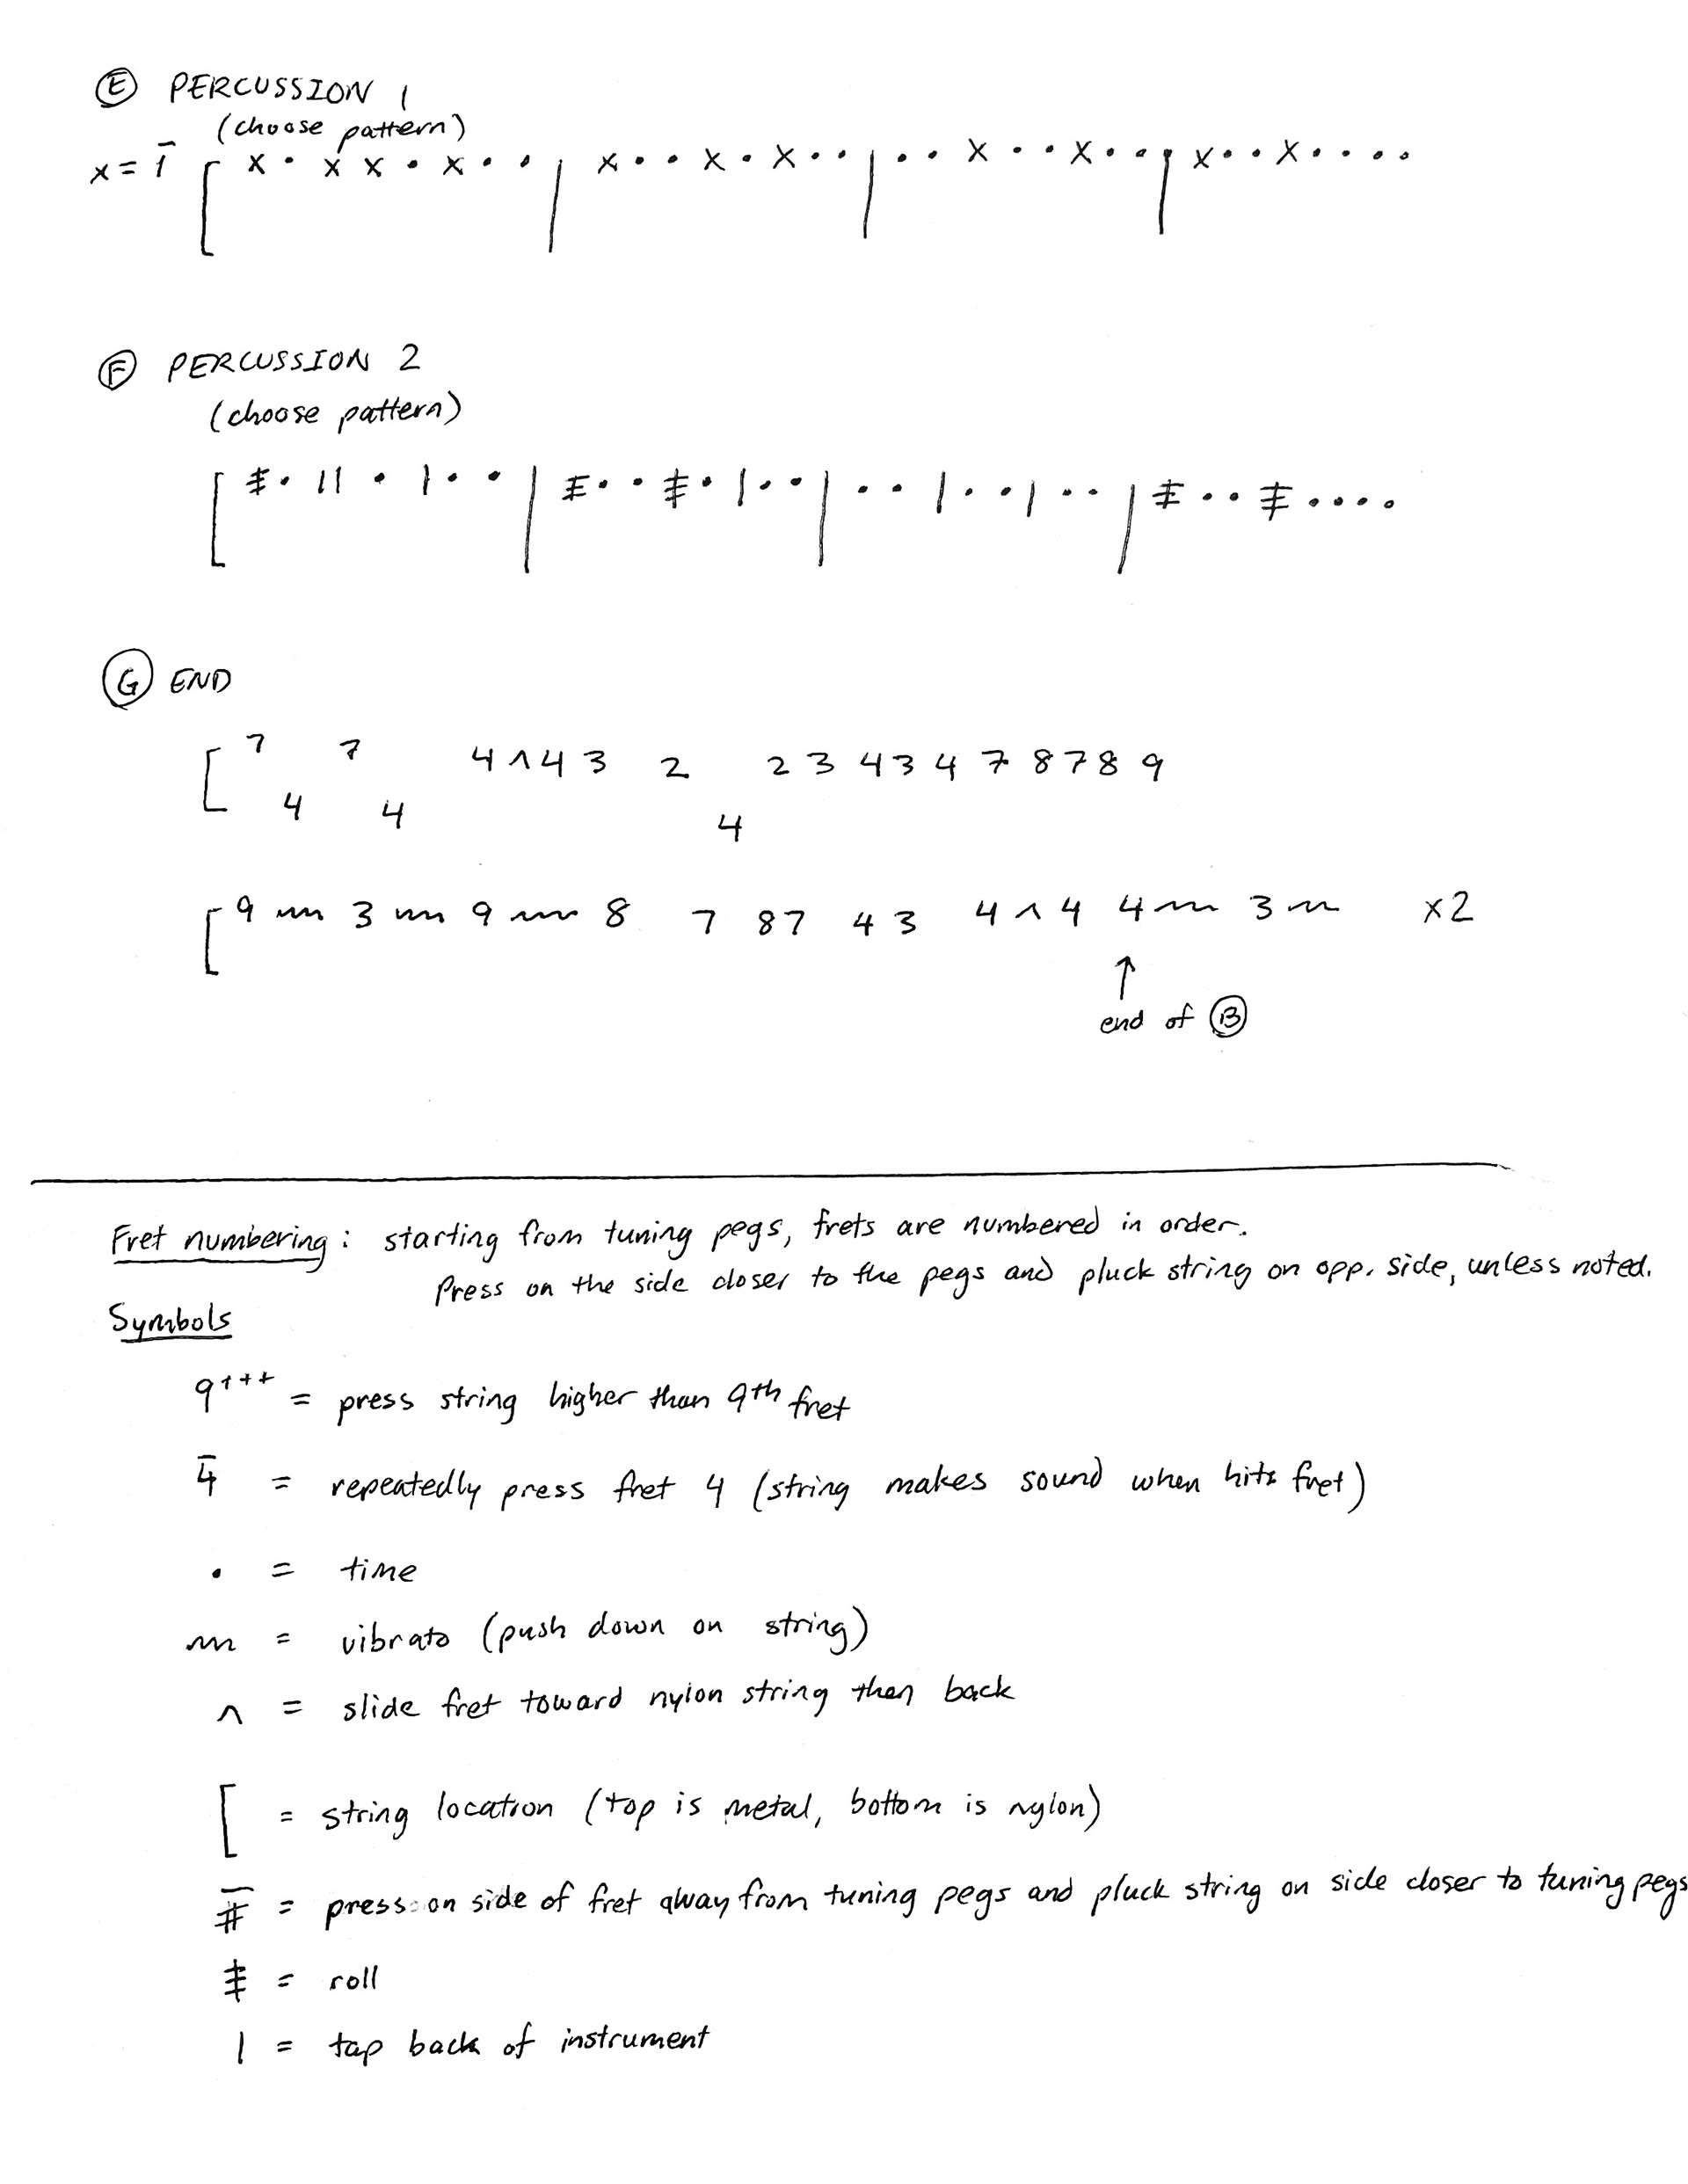 Ⓔ PERCUSSION 1
(choose pattern)
x = 1̄ [ x • x x • x • • | x • • x • x • • | • • x • • x • • | x • • x • • • •
Ⓕ PERCUSSION 2
(choose pattern)
[ ǂ • | | • | • • | ǂ • • ǂ • | • • | • • | • • | • • | ǂ • • ǂ • • • •
Ⓖ END
[ 7 7 4 ^ 4 3 2 2 3 4 3 4 7 8 7 8 9
4 4 4
[ 9 ~~ 3 ~~ 9 ~~ 8 7 8 7 4 3 4 ^ 4 4 ~~ 3 ~~ x2
↑
end of Ⓑ
Fret numbering: starting from tuning pegs, frets are numbered in order.
Press on the side closer to the pegs and pluck string on opp. side, unless noted.
Symbols
9+++ = press string higher than 9th fret
4̄ = repeatedly press fret 4 (string makes sound when hits fret)
• = time
~~ = vibrato (push down on string)
^ = slide fret toward nylon string then back
[ = string location (top is metal, bottom is nylon)
#̅ = press on side of fret away from tuning pegs and pluck string on side closer to tuning pegs
ǂ = roll
| = tap back of instrument